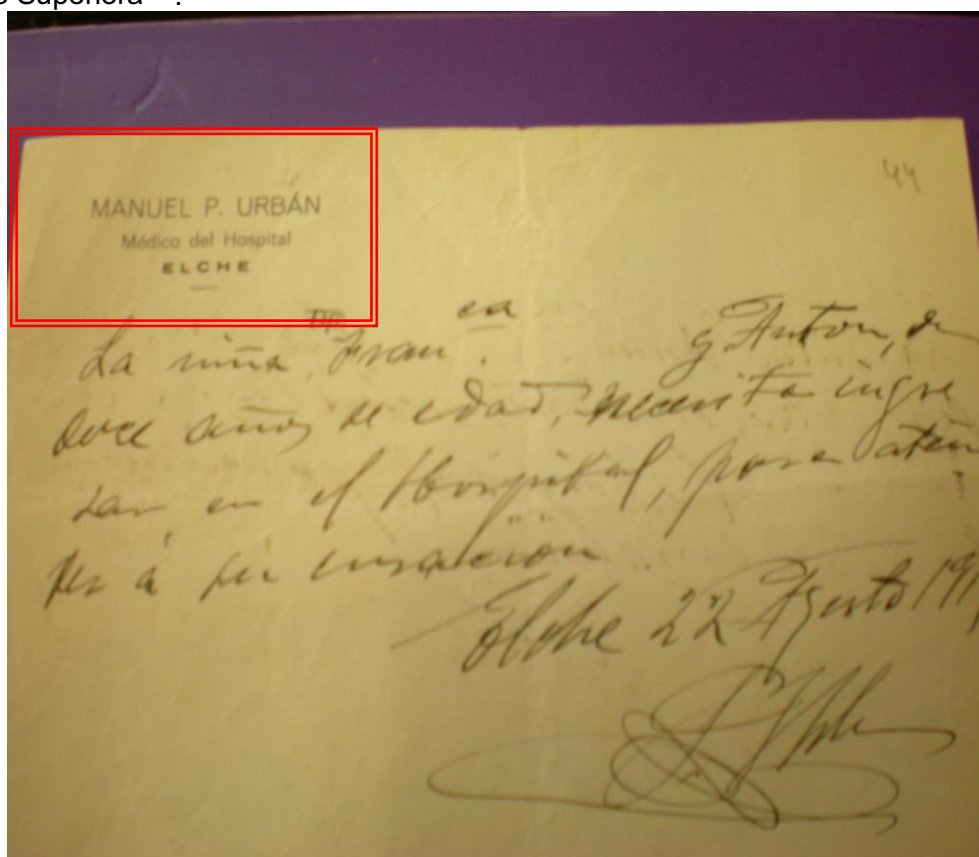 Superiora
44
MANUEL P. URBÁN
Médico del Hospital
ELCHE
La niña Fran.ca y Anton, de
doce años de edad, necesita ingre
sar en el Hospital, para aten
der á su curación.
Elche 22 Agosto 19